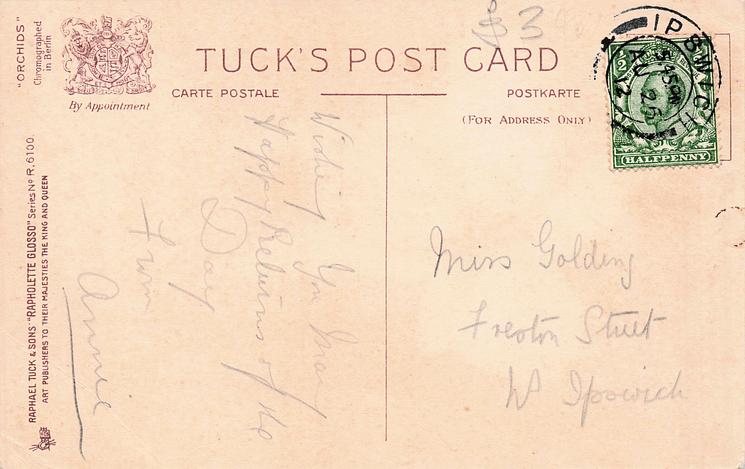 "ORCHIDS"
Chromographed
in Berlin
By Appointment
TUCK'S POST CARD
CARTE POSTALE
POSTKARTE
(FOR ADDRESS ONLY)
3
IPSWICH
AU 25
12
HALFPENNY
RAPHAEL TUCK & SONS' "RAPHOLETTE GLOSSO" Series Nº R. 6100.
ART PUBLISHERS TO THEIR MAJESTIES THE KING AND QUEEN
Wishing You Many
Happy Returns of the
Day
From
Annie
Miss Golding
Freston Street
Ipswich